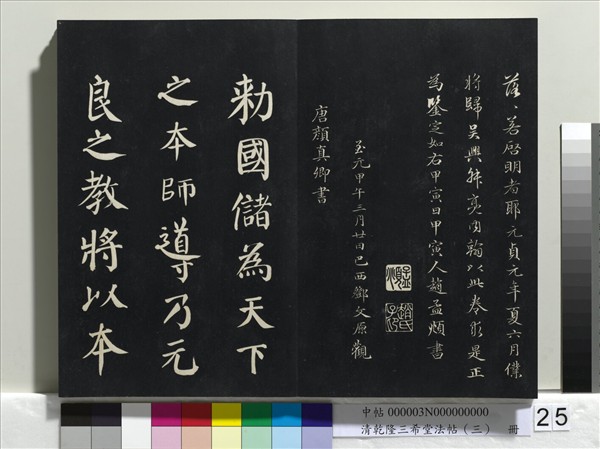 落落若启明者耶元貞元年夏六月僕
將歸吴興叔亮内翰以此卷求是正
為鑒定如右甲寅日甲寅人趙孟頫書
至元甲午三月廿日巴西鄧文原觀
唐顏真卿書
孟頫
趙氏子昂
勅國儲為天下
之本師導乃元
良之教將以本
中帖 000003N000000000
清乾隆三希堂法帖（三） 冊
25